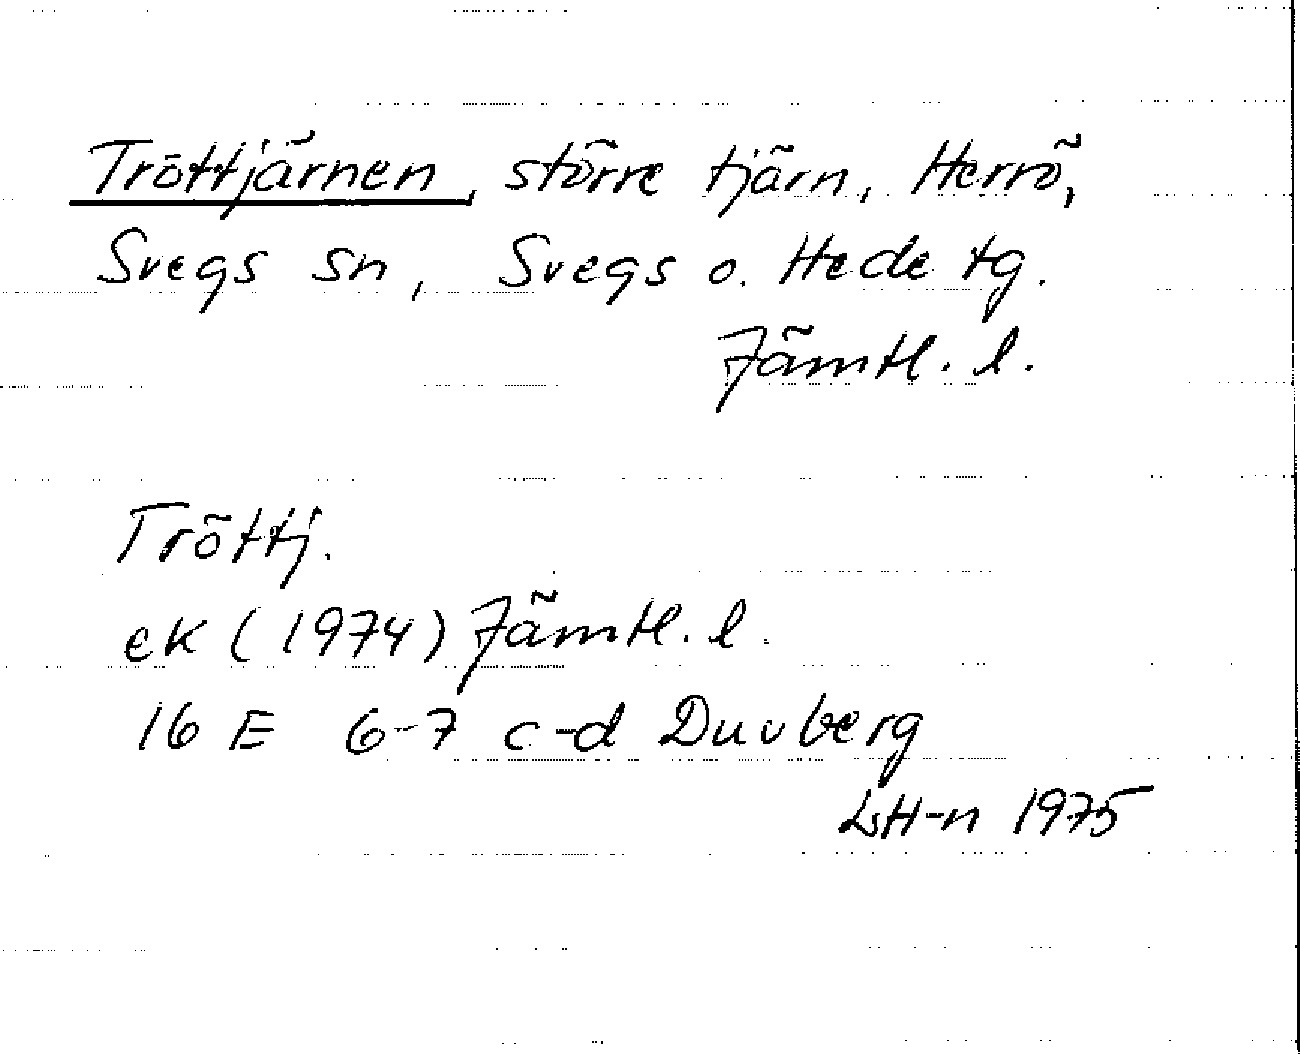 Tröttjärnen, större tjärn, Herrö,
Svegs sn, Svegs o. Hede tg.
Jämtl. l.
Tröttj.
ek (1974) Jämtl. l.
16 E 6-7 c-d Duvberg
LH-n 1975